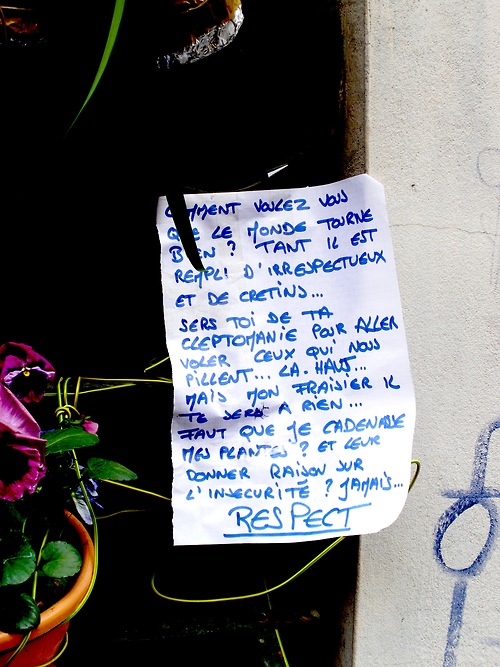 COMMENT VOULEZ VOUS
QUE LE MONDE TOURNE
BIEN ? TANT IL EST
REMPLI D'IRRESPECTUEUX
ET DE CRETINS...
SERS TOI DE TA
CLEPTOMANIE POUR ALLER
VOLER CEUX QUI NOUS
PILLENT... LA-HAUT...
MAIS MON FRAISIER IL
TE SERA A RIEN...
FAUT QUE JE CADENASSE
MES PLANTES ? ET LEUR
DONNER RAISON SUR
L'INSECURITÉ ? JAMAIS...
RESPECT